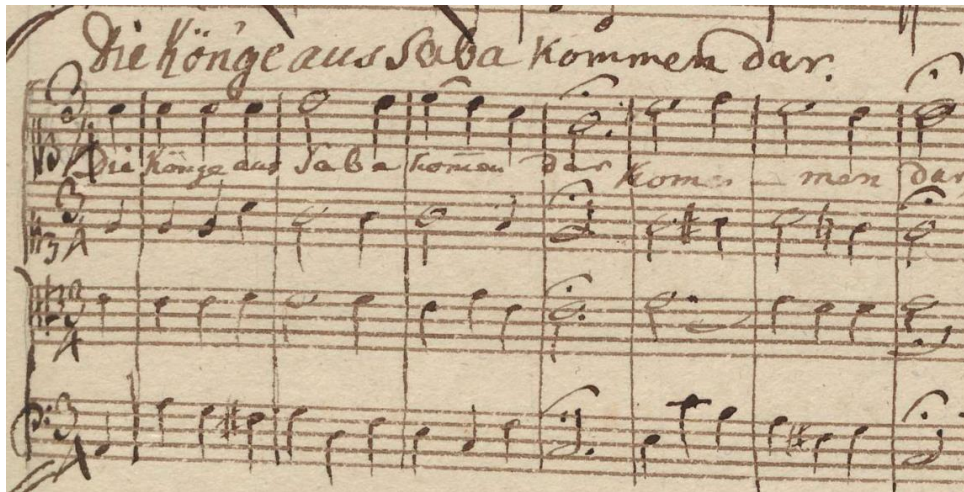 Die Kön'ge aus Saba kommen dar.
Die Könge aus Saba kom̄en dar kom̄en - men dar